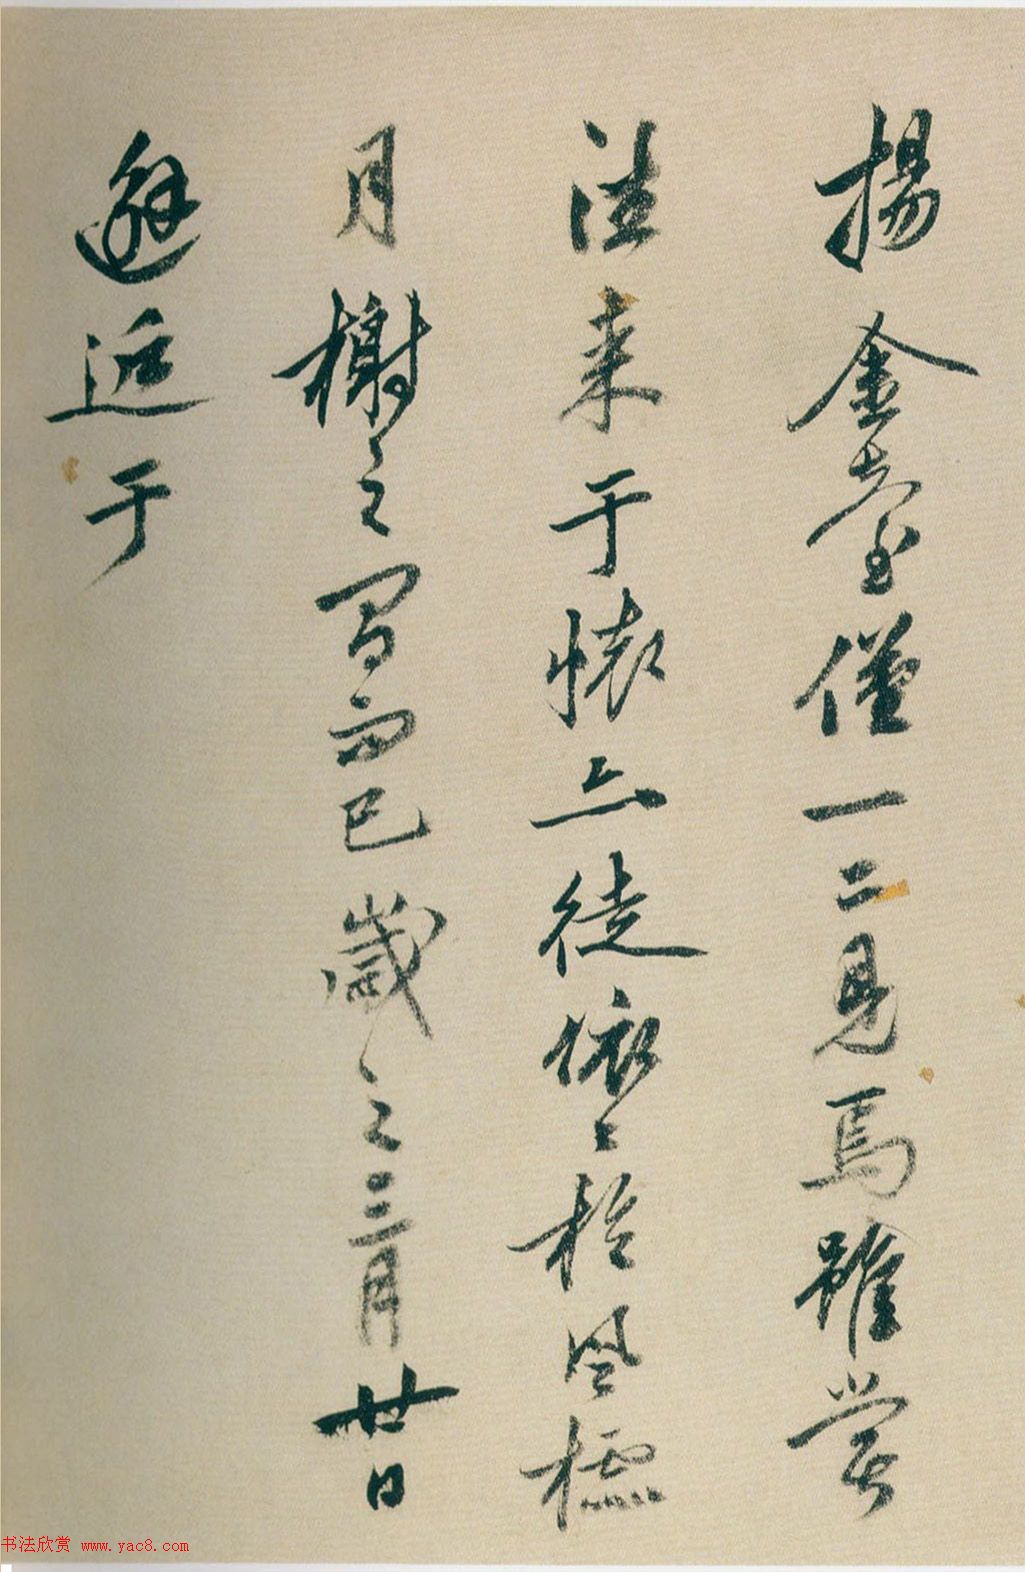 揚金臺僅一二見焉雖嘗
往来于懷亦徒依〻於風櫺
月榭之間而已歲之三月廿日
邂逅于
书法欣赏 www.yac8.com